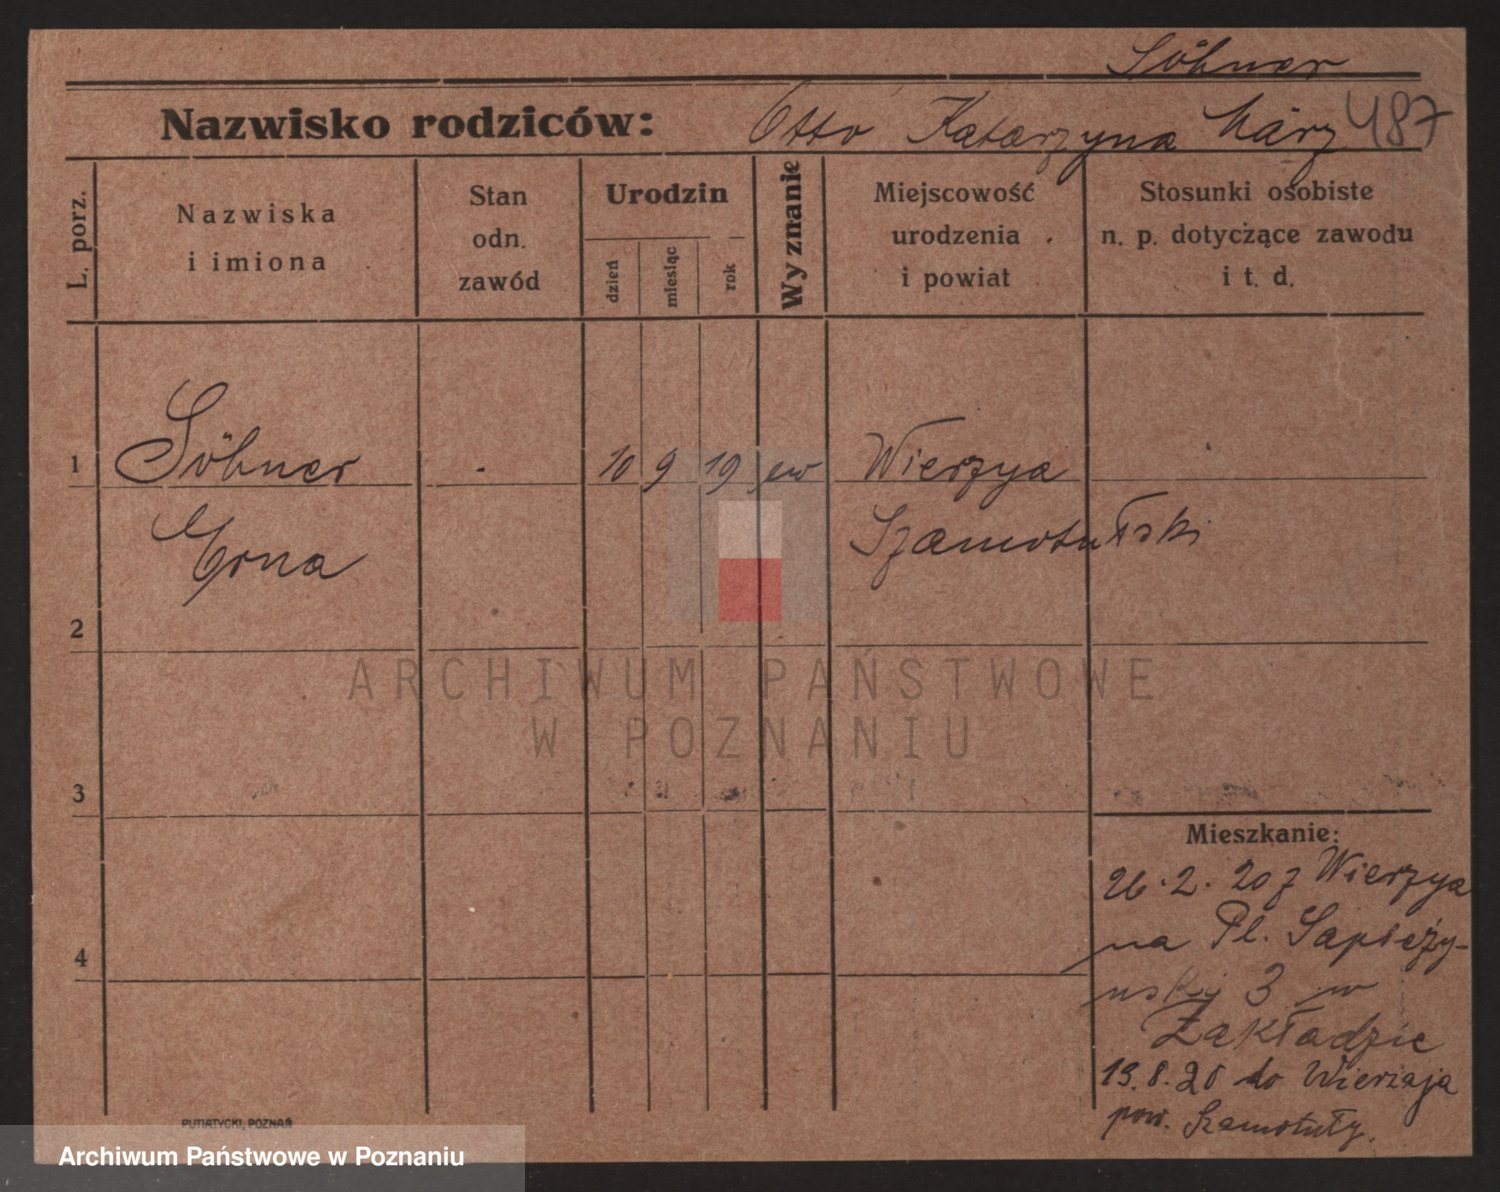 Söhner
Nazwisko rodziców: Otto Katarzyna März 487
L. porz.
Nazwiska
i imiona
Stan
odn.
zawód
Urodzin
dzień
miesiąc
rok
Wyznanie
Miejscowość
urodzenia
i powiat
Stosunki osobiste
n. p. dotyczące zawodu
i t. d.
1 Söhner - 10 9 19 ew Wierzya
Erna Szamotulski
2
3
4
Mieszkanie:
26.2.20 z Wierzya
na Pl. Sapieży-
nskj 3 w
Zakładzie
13.8.20 do Wierzaja
pow. Szamotuły.
PUTIATYCKI, POZNAŃ
ARCHIWUM PAŃSTWOWE
W POZNANIU
Archiwum Państwowe w Poznaniu